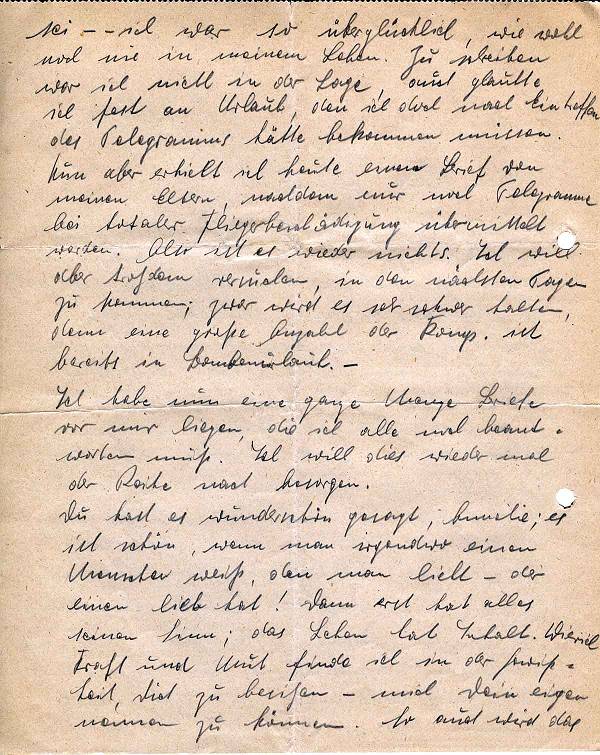 sei -- ich war so überglücklich, wie wohl
noch nie in meinem Leben. Zu schreiben
war ich nicht in der Lage, auch glaubte
ich fest an Urlaub, den ich doch nach Eintreffen
des Telegramms hätte bekommen müssen.
Nun aber erhielt ich heute einen Brief von
meinen Eltern, nachdem nur noch Telegramme
bei totaler Fliegerbeschädigung übermittelt
werden. Also ist es wieder nichts. Ich will
aber trotzdem versuchen, in den nächsten Tagen
zu kommen; zwar wird es sehr schwer halten,
denn eine große Anzahl der Komp. ist
bereits in Bombenurlaub. -
Ich habe nun eine ganze Menge Briefe
vor mir liegen, die ich alle noch beant-
worten muß. Ich will dies wieder mal
der Reihe nach besorgen.
Du hast es wunderschön gesagt, ; es
ist schön, wenn man irgendwo einen
Menschen weiß, den man liebt - der
einen lieb hat! Dann erst hat alles
seinen Sinn; das Leben hat Inhalt. Wieviel
Kraft und Mut finde ich in der Gewiß-
heit, Dich zu besitzen - mich Dein eigen
nennen zu können. So auch wird das